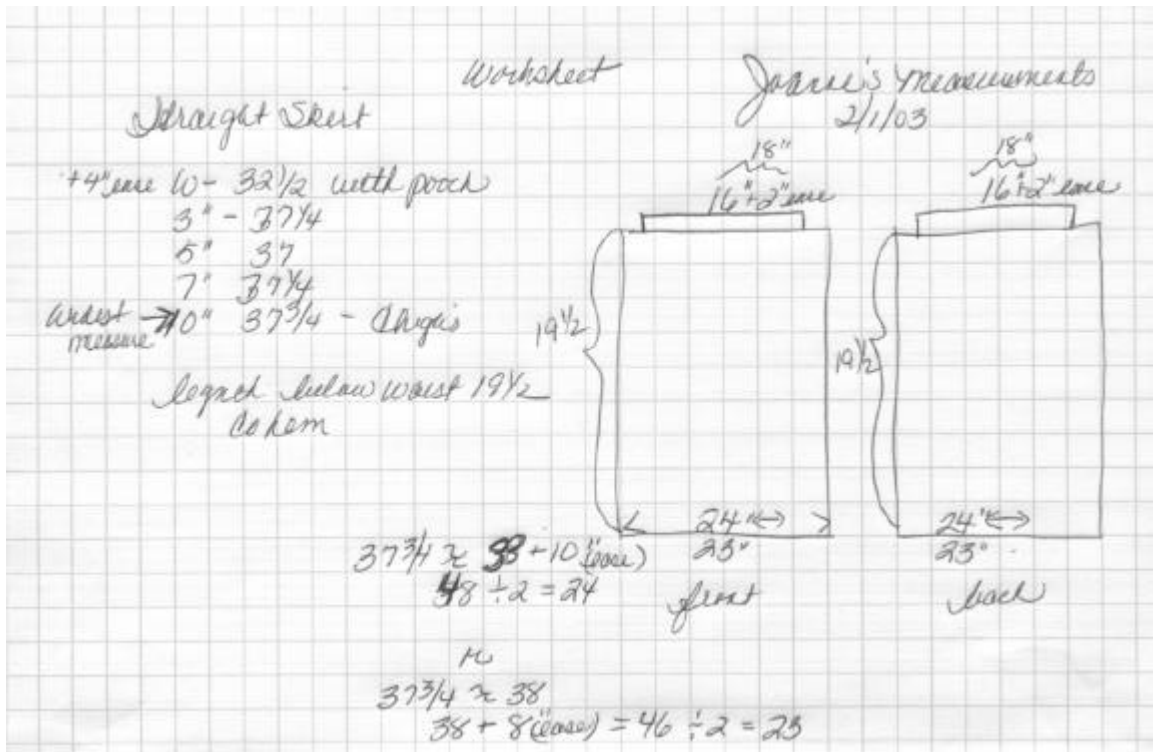 Worksheet
Joanne's Measurements
2/1/03
Straight Skirt
+4" ease W - 32 1/2 with pooch
3" - 37 1/4
5" 37
7" 37 1/4
widest measure → 10" 37 3/4 - thighs
length below waist 19 1/2
to hem
18"
16" + 2" ease
19 1/2
24"
23"
front
18"
16" + 2" ease
19 1/2
24"
23"
back
37 3/4 ≈ 38 + 10" (ease)
48 ÷ 2 = 24
or
37 3/4 ≈ 38
38 + 8" (ease) = 46 ÷ 2 = 23